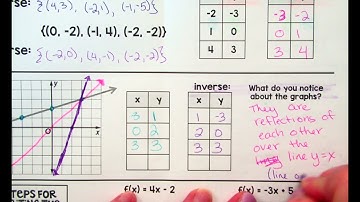 erse: {(4,3), (-2,1), (-1,-5)}
{(0, -2), (-1, 4), (-2, -2)}
erse: {(-2,0), (4,-1), (-2,-2)}
-2 -3
1 0
4 3
-3 -2
0 1
3 4
x y
3 1
0 2
3 3
inverse:
x y
1 -3
2 0
3 3
What do you notice about the graphs?
They are
reflections of
each other
over the
line y=x
(line o
y
x
TEPS FOR
f(x) = 4x - 2
f(x) = -3x + 5